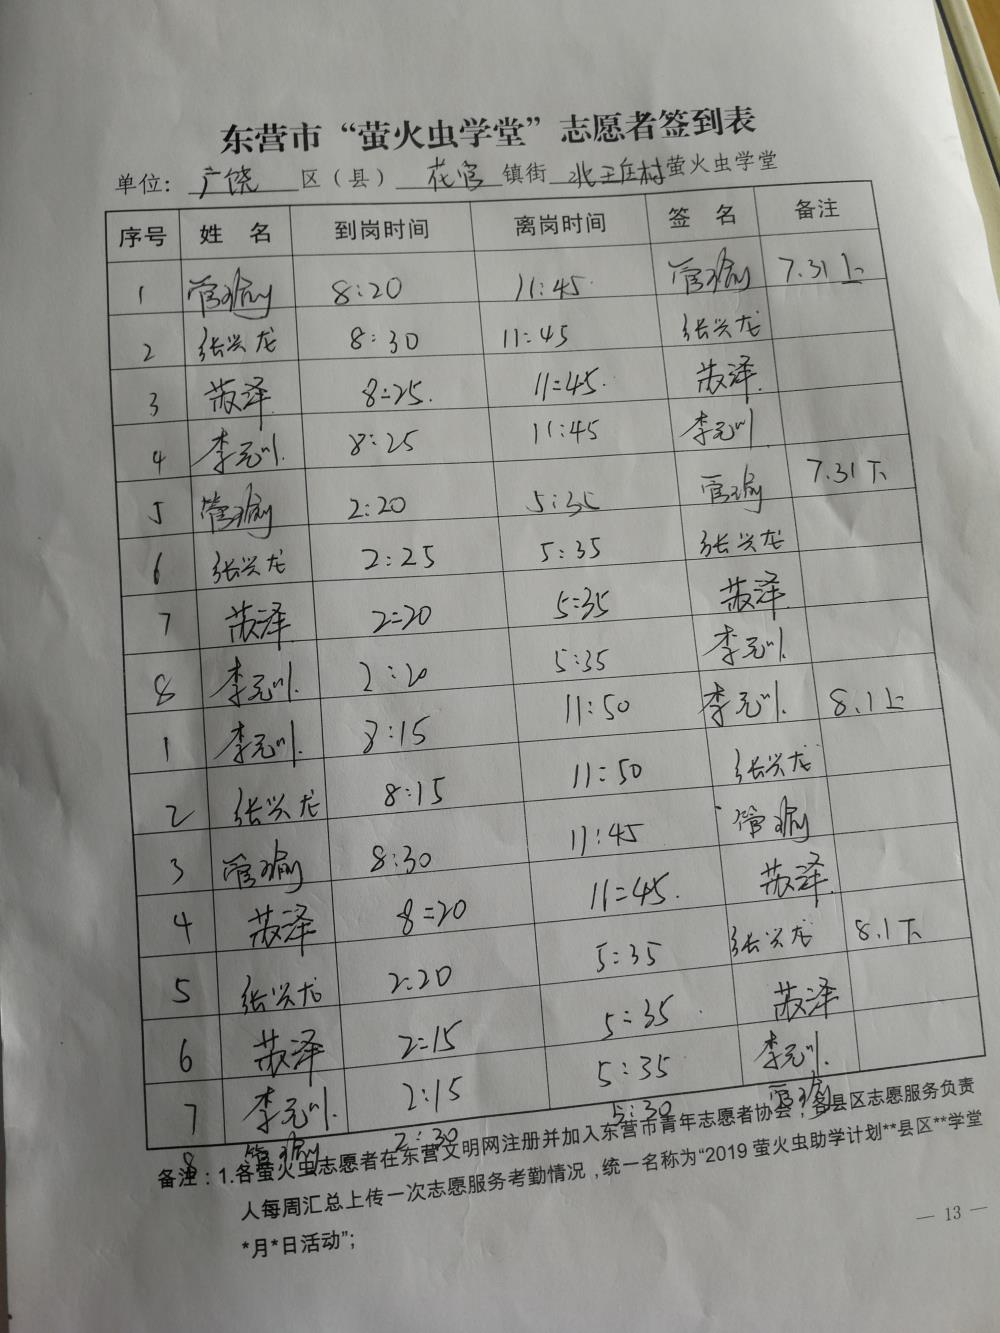 东营市“萤火虫学堂”志愿者签到表
单位：广饶区（县）花官镇街北王庄村萤火虫学堂
序号 姓 名 到岗时间 离岗时间 签 名 备注
1 管瑜 8:20 11:45 管瑜 7.31上
2 张兴龙 8:30 11:45 张兴龙
3 苏泽 8:25 11:45 苏泽
4 李元川 8:25 11:45 李元川
5 管瑜 2:20 5:35 管瑜 7.31下
6 张兴龙 2:25 5:35 张兴龙
7 苏泽 2:20 5:35 苏泽
8 李元川 2:20 5:35 李元川
1 李元川 8:15 11:50 李元川 8.1上
2 张兴龙 8:15 11:50 张兴龙
3 管瑜 8:30 11:45 管瑜
4 苏泽 8:20 11:45 苏泽
5 张兴龙 2:20 5:35 张兴龙 8.1下
6 苏泽 2:15 5:35 苏泽
7 李元川 2:15 5:35 李元川
8 管瑜 2:30 5:30 管瑜
备注：1.各萤火虫志愿者在东营文明网注册并加入东营市青年志愿者协会，各县区志愿服务负责
人每周汇总上传一次志愿服务考勤情况，统一名称为“2019萤火虫助学计划**县区**学堂
*月*日活动”；
— 13 —